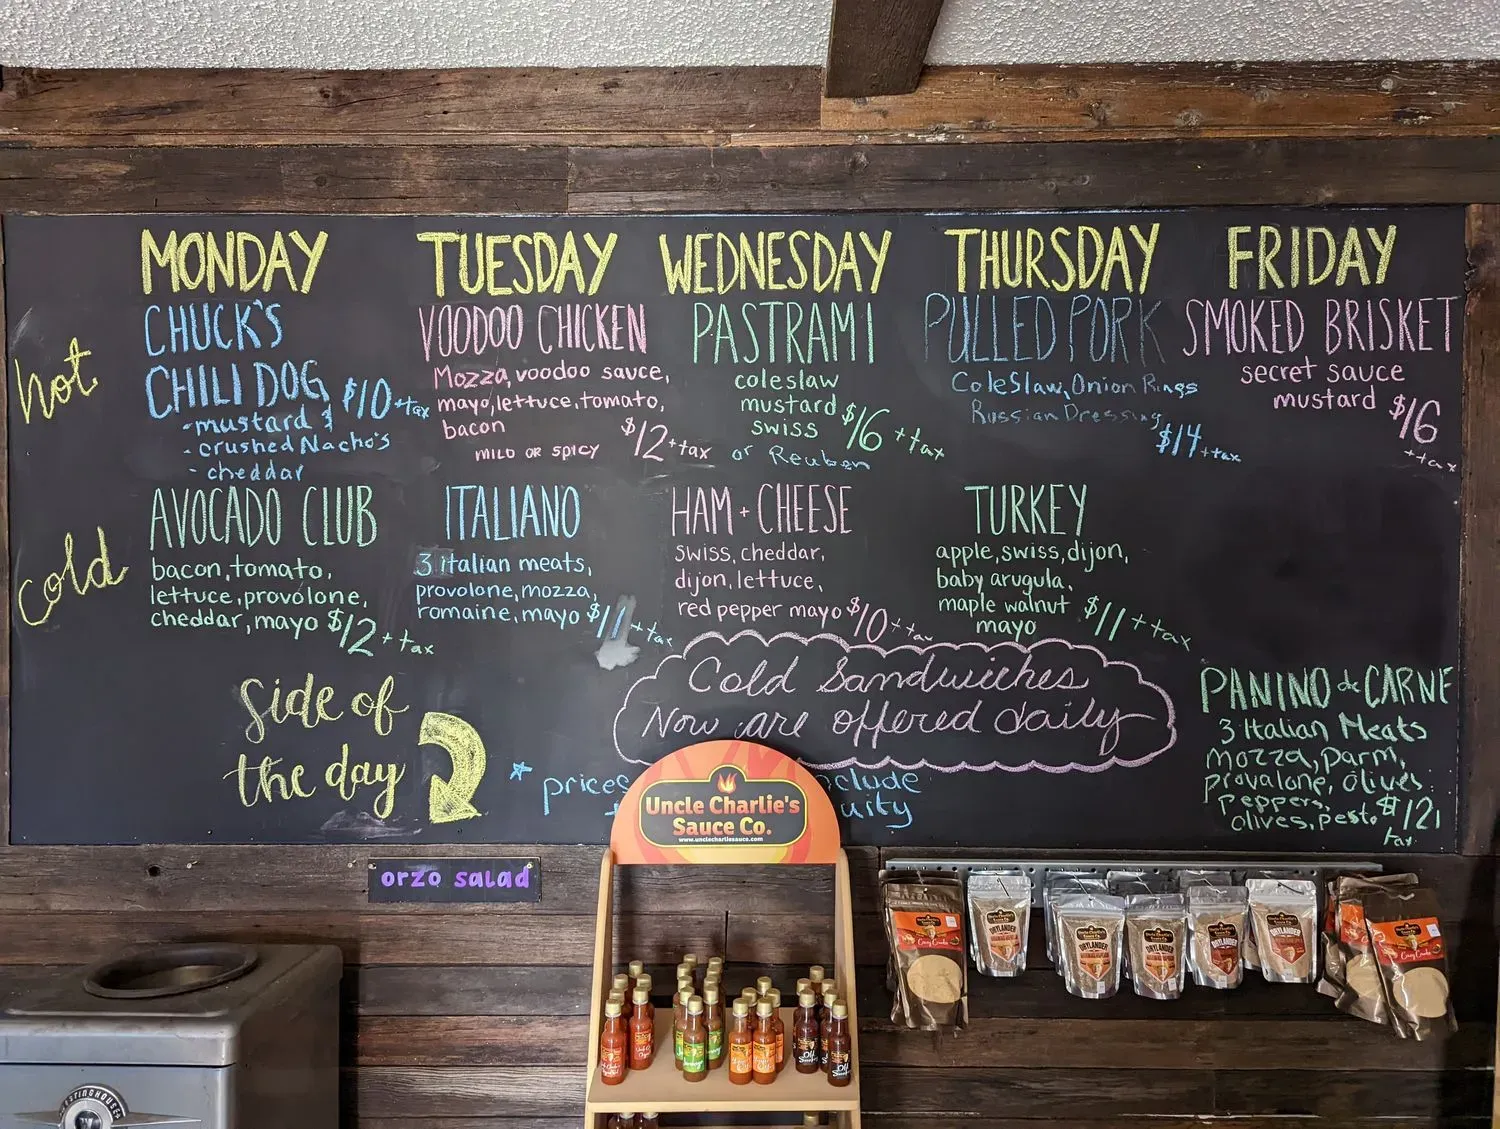 MONDAY TUESDAY WEDNESDAY THURSDAY FRIDAY
hot
CHUCK'S
CHILI DOG $10 + tax
- mustard &
- crushed Nacho's
- cheddar
VOODOO CHICKEN
Mozza, voodoo sauce,
mayo, lettuce, tomato,
bacon
MILD OR SPICY $12 + tax
PASTRAMI
coleslaw
mustard $16 + tax
swiss
or Reuben
PULLED PORK
ColeSlaw, Onion Rings
Russian Dressing
$14 + tax
SMOKED BRISKET
secret sauce
mustard $16
+ tax
cold
AVOCADO CLUB
bacon, tomato,
lettuce, provolone,
cheddar, mayo $12 + tax
ITALIANO
3 italian meats,
provolone, mozza,
romaine, mayo $11 + tax
HAM + CHEESE
swiss, cheddar,
dijon, lettuce,
red pepper mayo $10 + tax
TURKEY
apple, swiss, dijon,
baby arugula,
maple walnut $11 + tax
mayo
PANINO de CARNE
3 Italian Meats
mozza, parm,
provalone, olives
peppers,
olives, pesto $12
tax
Cold Sandwiches
Now are offered daily
side of
the day
* prices clude
uity
orzo salad
Uncle Charlie's
Sauce Co.
www.unclecharliesauce.com
WESTINGHOUSE
W
DRYLANDER
DRYLANDER
DRYLANDER
DRYLANDER
DRYLANDER